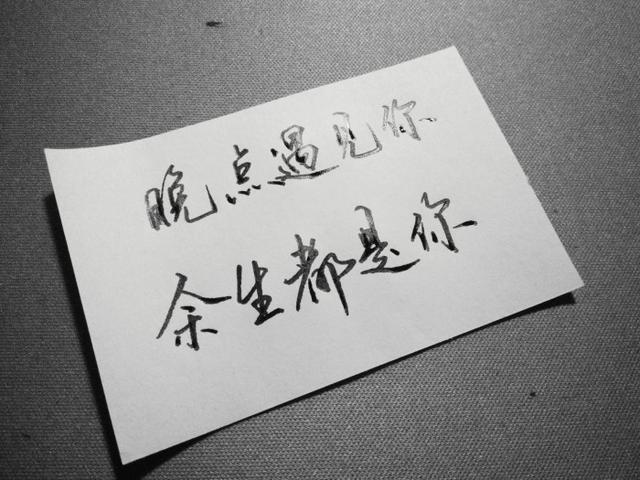 晚点遇见你
余生都是你